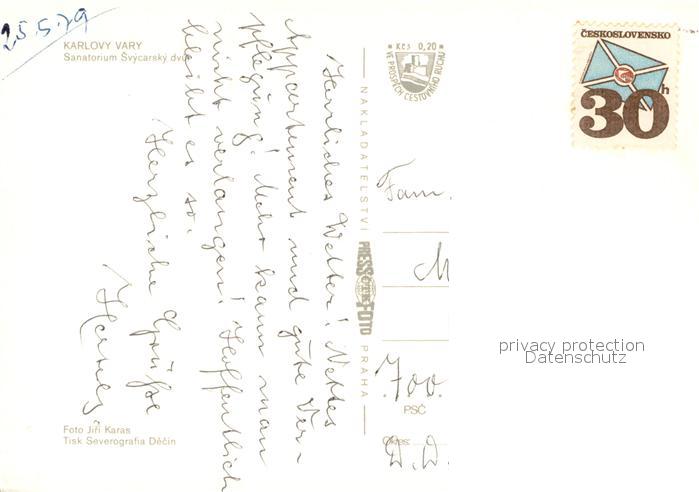 25.5.79
KARLOVY VARY
Sanatorium Švýcarský dvůr
Herrliches Wetter! Nettes
Appartement und gute Ver-
pflegung! Mehr kann man
nicht verlangen! Hoffentlich
bleibt es so.
Herzliche Grüße
Foto Jiří Karas
Tisk Severografia Děčín
Kčs 0,20
VE PROSPĚCH CESTOVNÍHO RUCHU
NAKLADATELSTVÍ
PRESSFOTO
PRAHA
ČESKOSLOVENSKO
30h
Fam.
M
700.
PSČ
Okres:
D.D.
privacy protection
Datenschutz